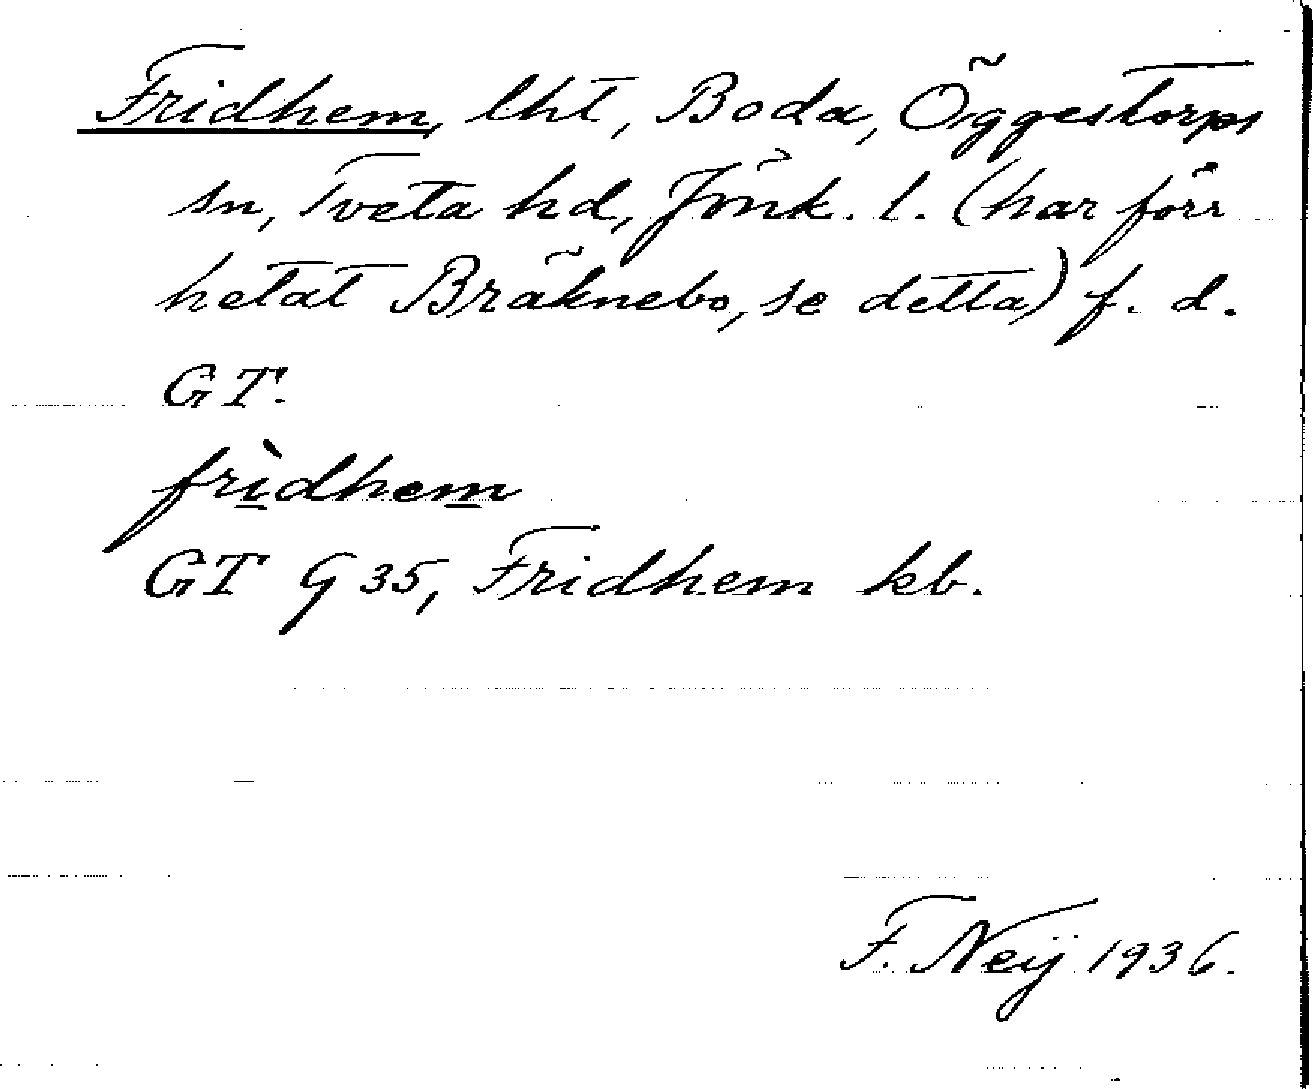 Fridhem, lht, Boda, Öggestorps
sn, Tveta hd, Jönk. l. (har förr
hetat Bräknebo, se detta) f. d.
GT.
frì̲dhem̲
GT G 35, Fridhem kb.
F. Neij 1936.